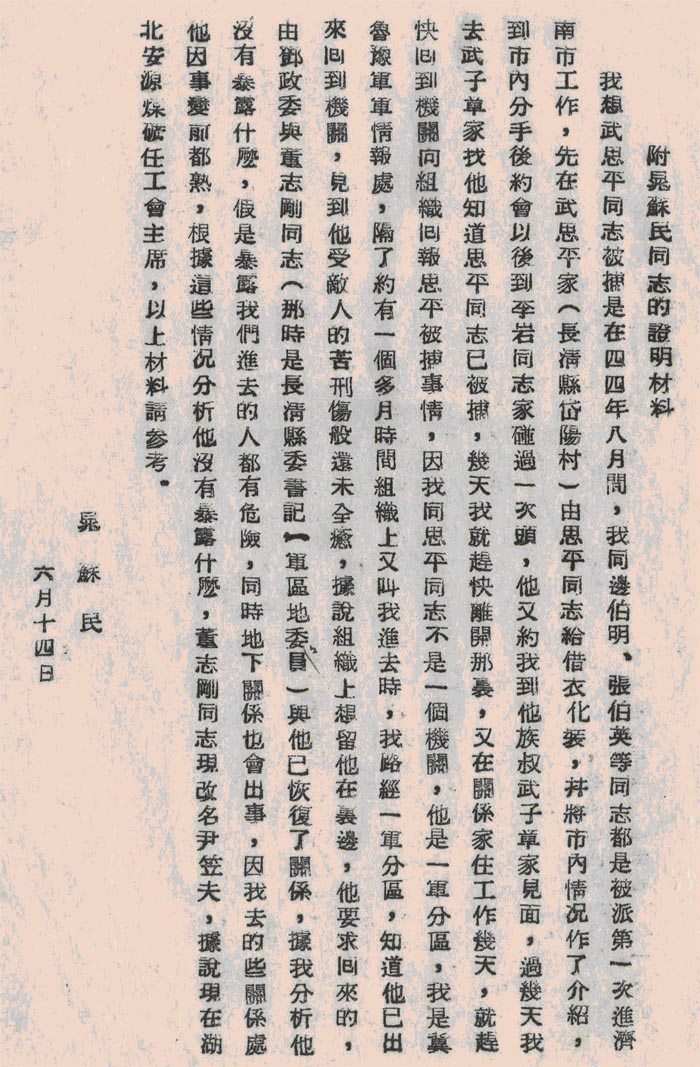 附晁蘇民同志的證明材料
我想武思平同志被捕是在四四年八月間，我同邊伯明、張伯英等同志都是被派第一次進濟
南市工作，先在武思平家（長清縣岱陽村）由思平同志給借衣化装，并將市內情况作了介紹，
到市內分手後約會以後到李岩同志家碰過一次頭，他又約我到他族叔武子章家見面，過幾天我
去武子章家找他知道思平同志已被捕，幾天我就趕快離開那裏，又在關係家住工作幾天，就趕
快回到機關向組織回報思平被捕事情，因我同思平同志不是一個機關，他是一軍分區，我是冀
魯豫軍軍情報處，隔了約有一個多月時間組織上又叫我進去時，我路經一軍分區，知道他已出
來回到機關，見到他受敵人的苦刑傷般還未全癒，據說組織上想留他在裏邊，他要求回來的，
由鄧政委與董志剛同志（那時是長清縣委書記一軍區地委員）與他已恢復了關係，據我分析他
沒有暴露什麽，假是暴露我們進去的人都有危險，同時地下關係也會出事，因我去的些關係處
他因事變前都熟，根據這些情况分析他沒有暴露什麽，董志剛同志現改名尹笠夫，據說現在湖
北安源煤礦任工會主席，以上材料請參考。
晁蘇民
六月十四日